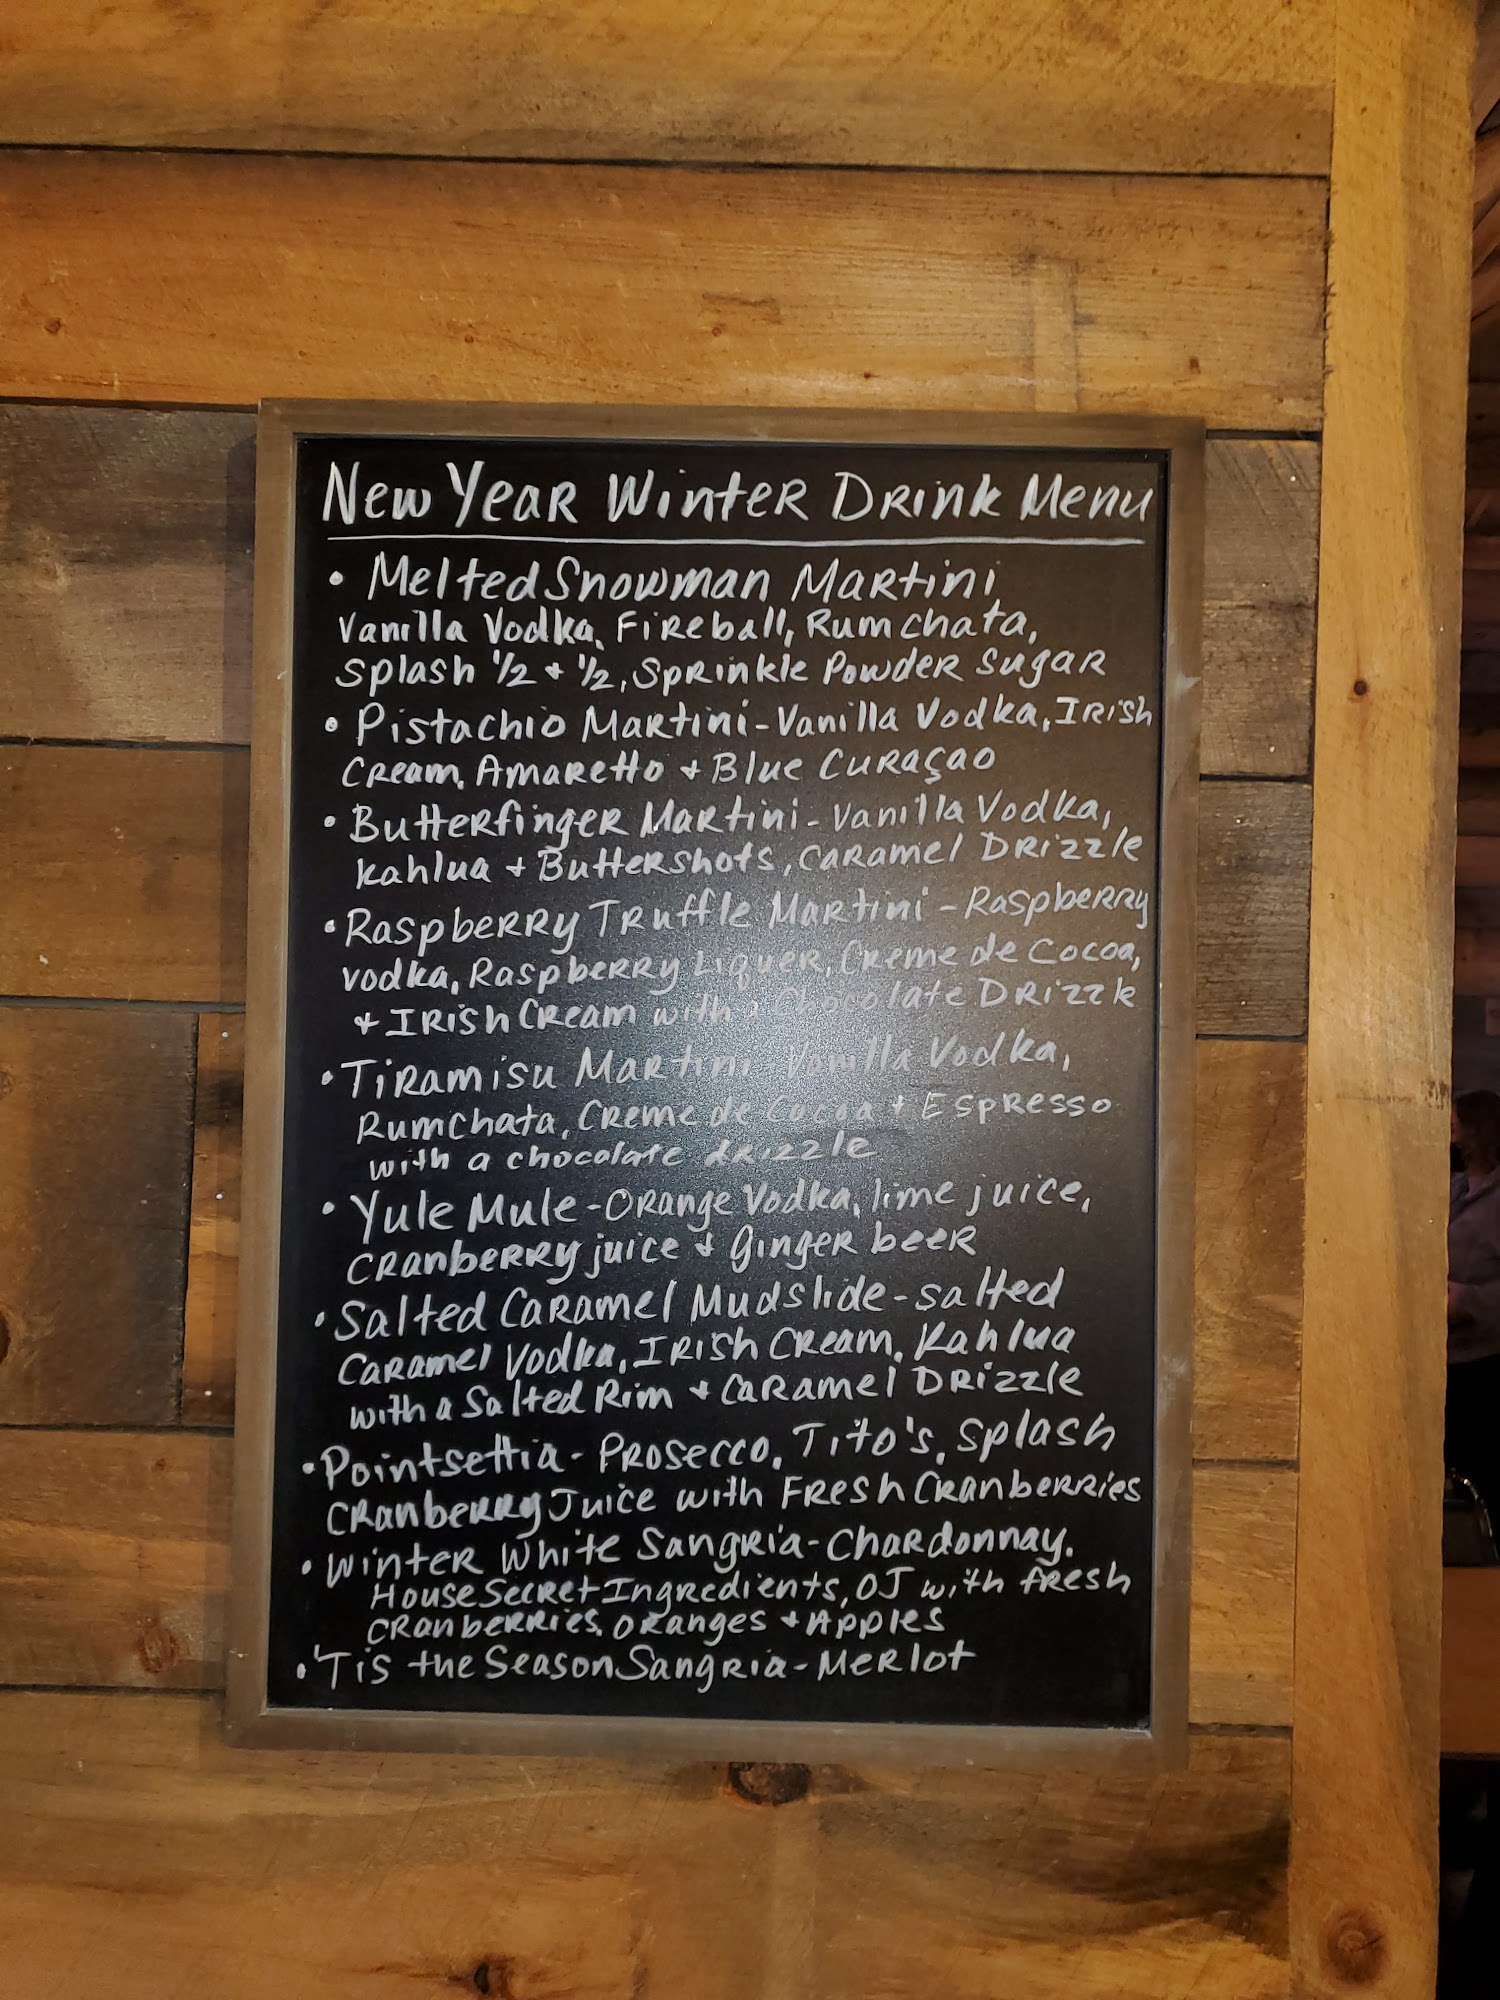 New Year Winter Drink Menu
• Melted Snowman Martini
Vanilla Vodka, Fireball, Rumchata,
Splash 1/2 + 1/2, Sprinkle Powder Sugar
• Pistachio Martini - Vanilla Vodka, Irish
Cream, Amaretto + Blue Curaçao
• Butterfinger Martini - Vanilla Vodka,
Kahlua + Buttershots, Caramel Drizzle
• Raspberry Truffle Martini - Raspberry
Vodka, Raspberry Liquer, Creme de Cocoa,
+ Irish Cream with a Chocolate Drizzle
• Tiramisu Martini - Vanilla Vodka,
Rumchata, Creme de Cocoa + Espresso
with a chocolate drizzle
• Yule Mule - Orange Vodka, lime juice,
Cranberry juice + Ginger beer
• Salted Caramel Mudslide - salted
Caramel Vodka, Irish Cream, Kahlua
with a Salted Rim + Caramel Drizzle
• Pointsettia - Prosecco, Tito's, Splash
Cranberry Juice with Fresh Cranberries
• Winter White Sangria - Chardonnay,
House Secret Ingredients, OJ with fresh
Cranberries, oranges + Apples
• 'Tis the Season Sangria - Merlot